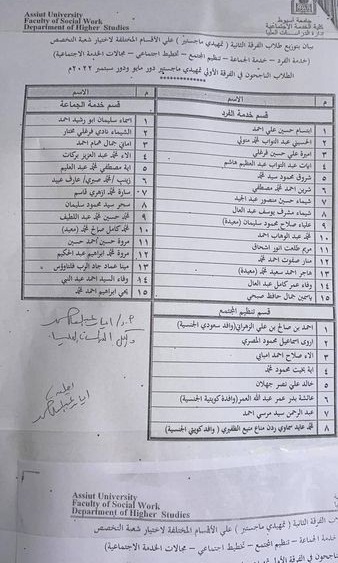 Assiut University
Faculty of Social Work
Department of Higher Studies
جامعة أسيوط
كلية الخدمة الاجتماعية
إدارة الدراسات العليا
بيان بتوزيع طلاب الفرقة الثانية ( تمهيدي ماجستير ) علي الأقسام المختلفة لاختيار شعبة التخصص
(خدمة الفرد – خدمة الجماعة – تنظيم المجتمع – تخطيط اجتماعي – مجالات الخدمة الاجتماعية)
الطلاب الناجحون في الفرقة الأولي تمهيدي ماجستير دور مايو ودور سبتمبر ٢٠٢٢م
م الاسم
قسم خدمة الفرد
١ ابتسام حسين علي احمد
٢ الحسيني عبد التواب محمد متولي
٣ اميرة علي حسين فرغلي
٤ ايات عبد التواب عبد العظيم هاشم
٥ شروق محمود سيد محمد
٦ شرين احمد محمد مصطفي
٧ شيماء حسين منصور عبد الجيد
٨ شيماء مشرف يوسف عبد العال
٩ علياء صلاح محمود سليمان (معيدة)
١٠ محمد عبد الوهاب احمد
١١ مريم طلعت انور اسحاق
١٢ منار صفوت احمد محمد
١٣ هاجر احمد سعيد محمد (معيدة)
١٤ وفاء عمر كامل عبد العال
١٥ ياسمين جمال حافظ صبحي
م الاسم
قسم خدمة الجماعة
١ اسماء سليمان ابو رشيد احمد
٢ الشيماء نادي فرغلي مختار
٣ اماني جمال همام احمد
٤ الاء محمد عبد العزيز بركات
٥ اية مصطفي محمد عبد العليم
٦ زينب محمد صبري عارف عبيد
٠٧ سارة محمد ازهري قاسم
٨ سحر سيد محمود سليمان
٩ محمد حسين محمد عبد اللطيف
١٠ محمد كامل صالح محمد (معيد)
١١ مروة حسين احمد حسين
١٢ مروة محمد ابراهيم عبد الحكيم
١٣ مينا عماد جاد الرب فلتاؤوس
١٤ وفاء السيد احمد عبد النبي
١٥ يحي ابراهيم احمد محمد
قسم تنظيم المجتمع
١ احمد بن صالح بن علي الزهراني(وافد سعودي الجنسية)
٢ اروى اسماعيل محمود المصري
٣ الاء صلاح احمد امبابي
٤ اية بخيت محمود محمد
٥ خالد علي نصر جهلان
٦ عائشة بدر عمر عبد الله العمر(وافدة كويتية الجنسية)
٧ عبد الرحمن سيد مرسي احمد
٨ محمد عايد سماوي ردن مناع منيع الظفيري ( وافد كويتي الجنسية)
Assiut University
Faculty of Social Work
Department of Higher Studies